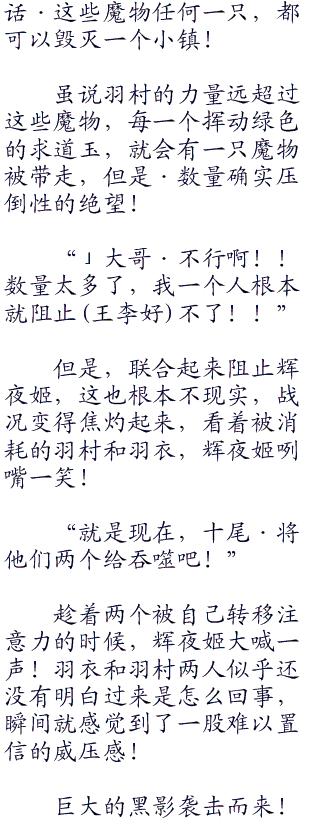 话·这些魔物任何一只，都
可以毁灭一个小镇！
虽说羽村的力量远超过
这些魔物，每一个挥动绿色
的求道玉，就会有一只魔物
被带走，但是·数量确实压
倒性的绝望！
“」大哥·不行啊！！
数量太多了，我一个人根本
就阻止(王李好)不了！！”
但是，联合起来阻止辉
夜姬，这也根本不现实，战
况变得焦灼起来，看着被消
耗的羽村和羽衣，辉夜姬咧
嘴一笑！
“就是现在，十尾·将
他们两个给吞噬吧！”
趁着两个被自己转移注
意力的时候，辉夜姬大喊一
声！羽衣和羽村两人似乎还
没有明白过来是怎么回事，
瞬间就感觉到了一股难以置
信的威压感！
巨大的黑影袭击而来！